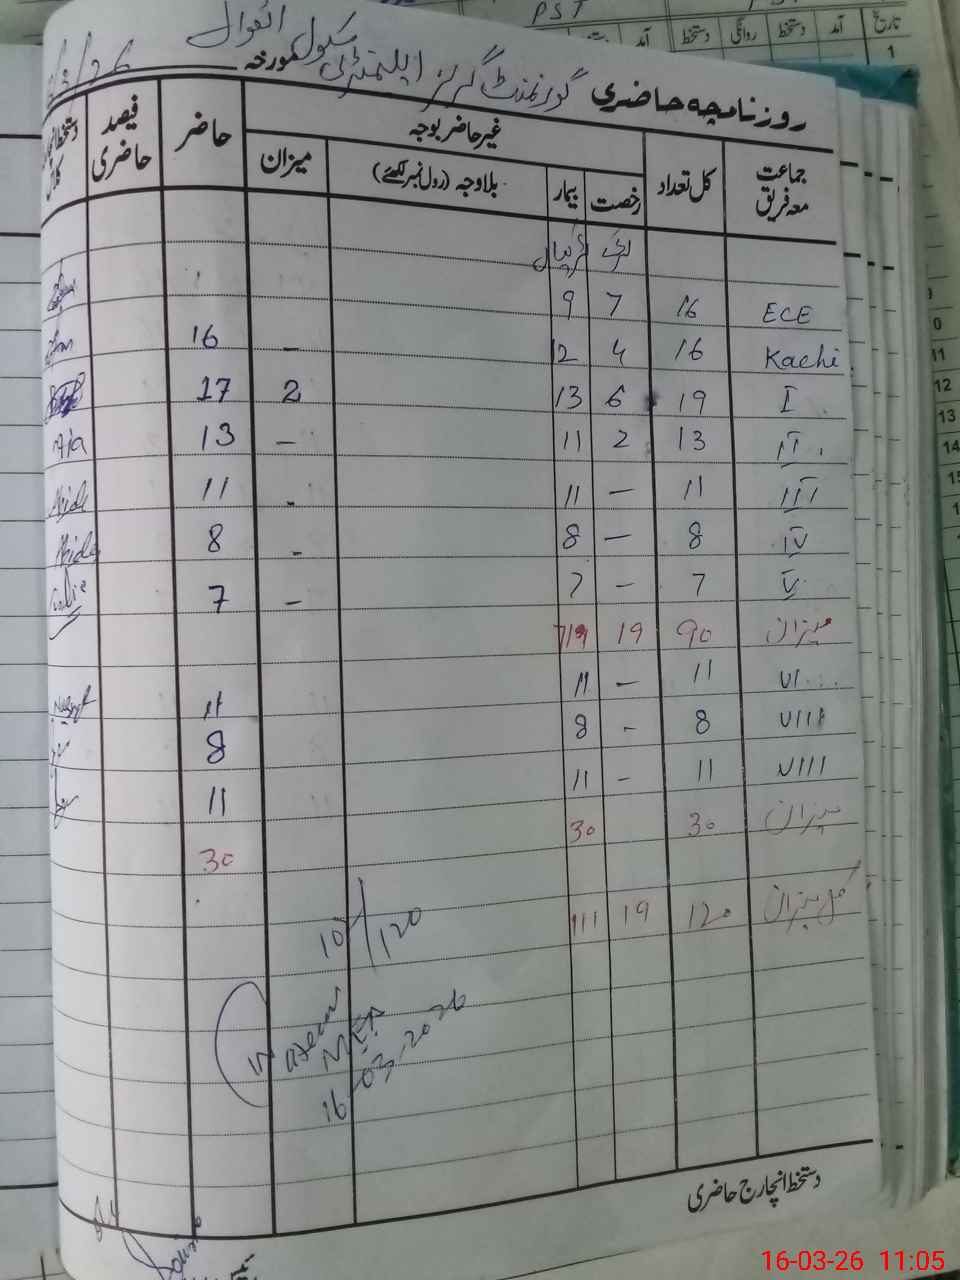 PST
تاریخ آمد دستخط روانگی دستخط آمد
1
گورنمنٹ گرلز ایلیمنٹری سکول
روزنامچہ حاضری مورخہ
جماعت معہ فریق کل تعداد غیر حاضر بوجہ حاضر فیصد حاضری
رخصت بیمار بلاوجہ (رول نمبر لکھئے) میزان
ECE 16 7 9
Kachi 16 4 12 – 16
I 19 6 13 2 17
II 13 2 11 – 13
III 11 – 11 - 11
IV 8 – 8 - 8
V 7 – 7 – 7
میزان 90 19
VI 11 – 11 11
VIII 8 - 8 8
VIII 11 – 11 11
میزان 30 30 30
کل میزان 120 19 111
/120
Waseem
MEA
16-03-2026
دستخط انچارج حاضری
16-03-26 11:05